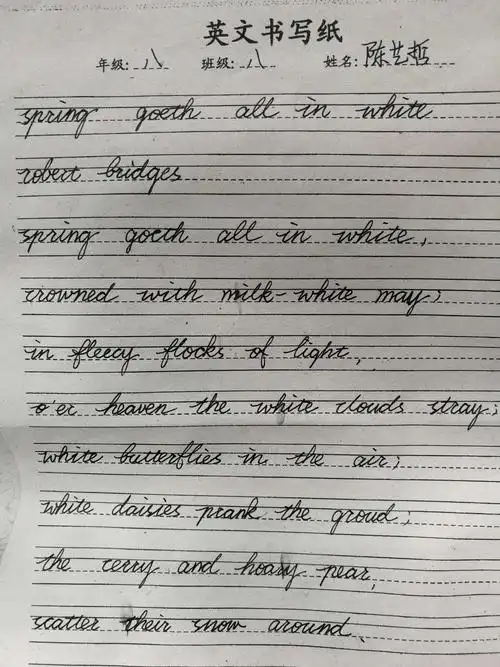 英文书写纸
年级: 八 班级: 八 姓名: 陈艺哲
spring goeth all in white
robert bridges
spring goeth all in white,
crowned with milk-white may;
in fleecy flocks of light,
o'er heaven the white clouds stray;
white butterflies in the air;
white daisies prank the groud;
the cerry and hoary pear,
scatter their snow around.